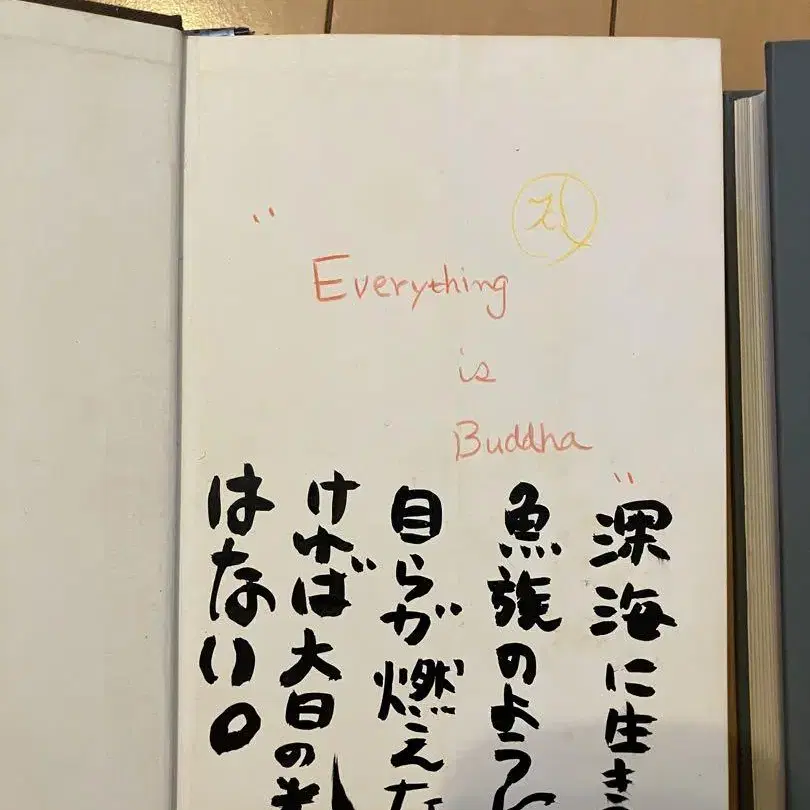 "Everything
is
Buddha"
深海に生き
魚族のように
自らが燃えな
ければ大日の
はない。